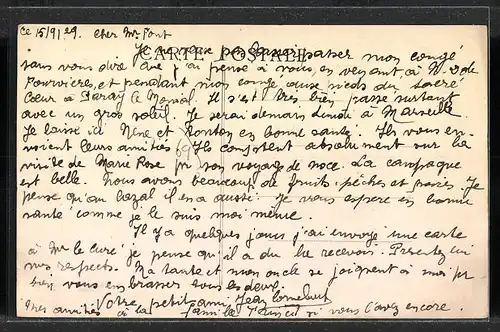 Ce 15/9/29. Cher Mr Pont
CARTE POSTALE
Je ne veux pas laisser passer mon congé
sans vous dire que j'ai pensé à vous, en venant, à N. D de
Fourvières, et pendant mon congé aux pieds du Sacré
Cœur à Paray le Monial. Il s'est très bien passé surtout
avec un gros soleil. Je serai demain lundi à Marseille.
Je laisse ici Nène et Tonton en bonne santé. Ils vous en-
voient leurs amitiés. Ils comptent absolument sur la
visite de Marie Rose pr son voyage de noce. La campagne
est belle. Nous avons beaucoup de fruits, pêches et poires. Je
pense qu'au il en a aussi. Je vous espère en bonne
santé comme je le suis moi même.
Il y a quelques jours j'ai envoyé une carte
à Mr le Curé je pense qu'il a du la recevoir. Présentez lui
mes respects. Ma tante et mon oncle se joignent à moi pr
vous embrasser tous les deux.
Votre petit ami Jean
Mes amitiés à la famille si vous l'avez encore.